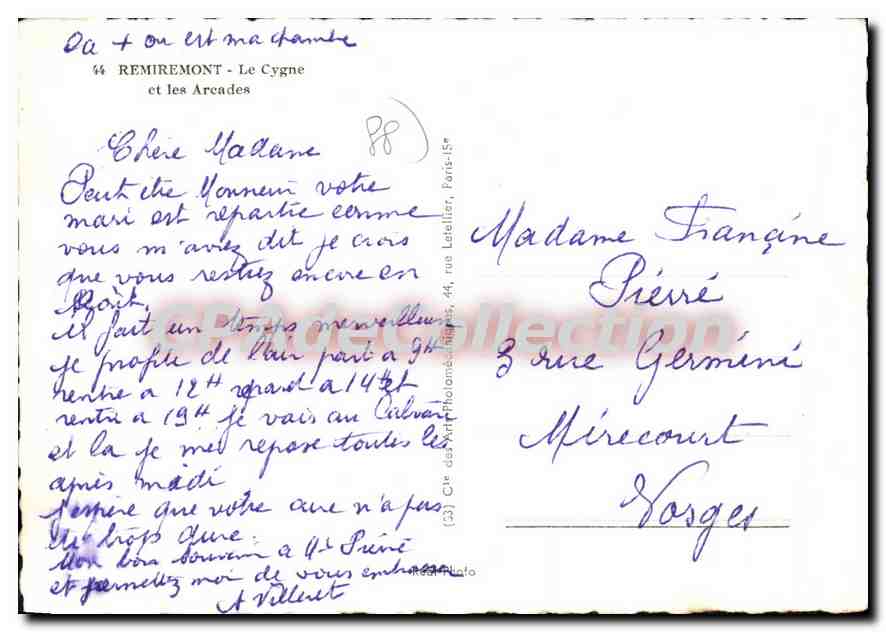 Oa + ou est ma chambre
44 REMIREMONT - Le Cygne
et les Arcades
88
Chère Madame
Peut être Monsieur votre
mari est repartie comme
vous m'aviez dit je crois
que vous restiez encore en
Août.
il fait un temps merveilleux
je profite de l'air part a 9H
rentre a 12H repard a 14H et
rentre a 19H je vais au Calvaire
et la je me repose toutes les
après midi
j'espère que votre cure n'a pas
été trops dure.
Mon bon souvenir a Mr Pierré
et permettez moi de vous embrasser
A Villeret
(53) Cie des Arts Photomécaniques, 44, rue Letellier, Paris-15e
Real-Photo
CPADeCollection
Madame Françine
Piérré
3 rue Germini
Mirecourt
Vosges